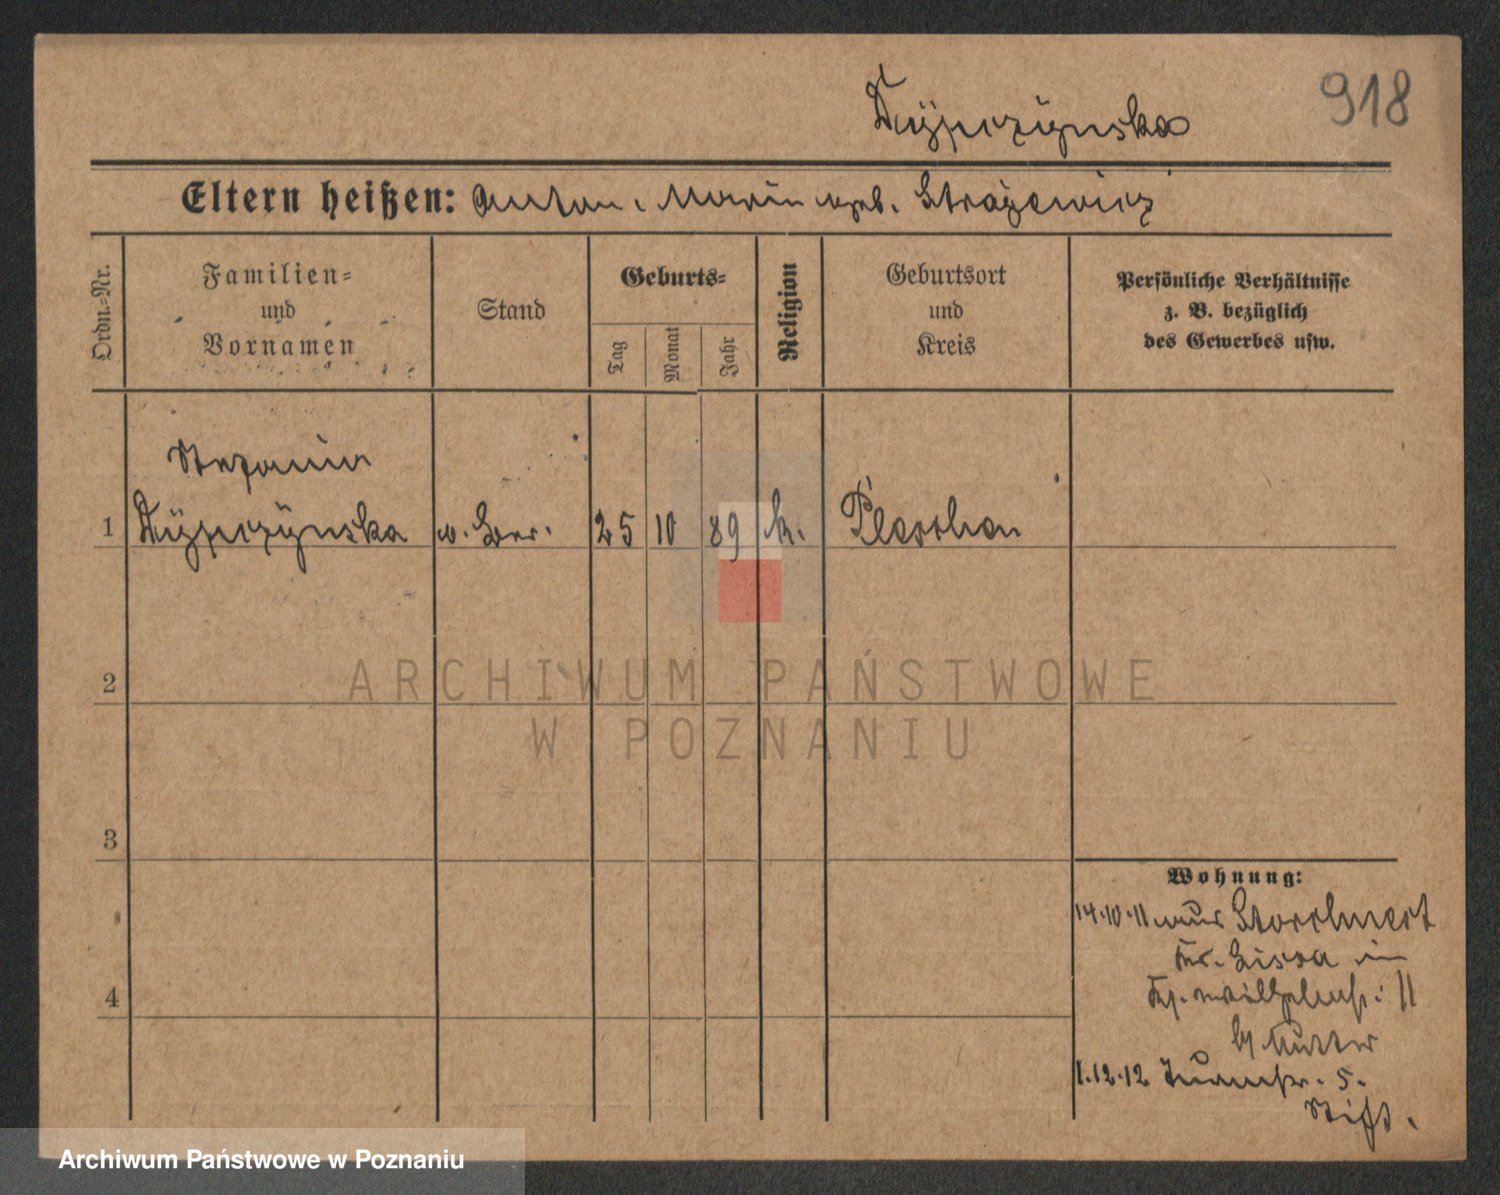 918
Eltern heißen: Anton, Maria geb. Strazewicz
Ordn.-Nr.
Familien-
und
Vornamen
Stand
Geburts-
Tag
Monat
Jahr
Religion
Geburtsort
und
Kreis
Persönliche Verhältnisse
z. B. bezüglich
des Gewerbes usw.
Stefania
1 25 10 89 k. Pleschen
2
ARCHIWUM PAŃSTWOWE
W POZNANIU
3
Wohnung:
14.10.11 aus Storchnest
Kr. Lissa in
11
4
b/ Mutter
1.12.12 5.
Stift.
Archiwum Państwowe w Poznaniu